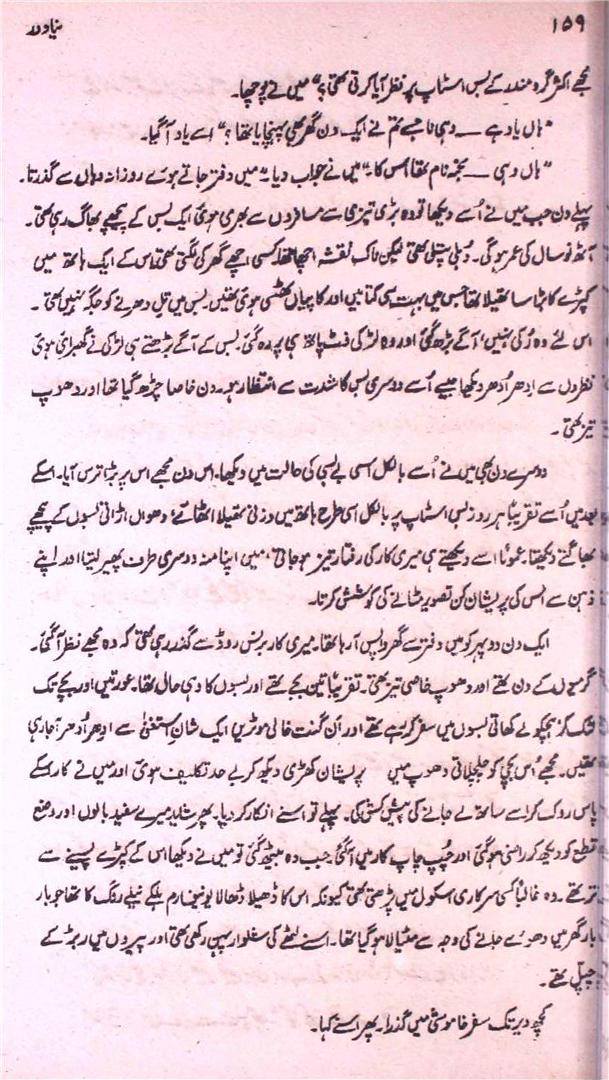 ۱۵۹ نیا دور
مجھے اکثر گرو مندر کے بس اسٹاپ پر نظر آیا کرتی تھی؟" میں نے پوچھا۔
"ہاں یاد ہے ــــ وہی نا جسے تم نے ایک دن گھر بھی پہنچایا تھا؟" اسے یاد آ گیا۔
"ہاں وہی ــــ نجمہ نام تھا اس کا۔" میں نے جواب دیا۔ "میں دفتر جاتے ہوئے روزانہ وہاں سے گذرتا۔
پہلے دن جب میں نے اُسے دیکھا تو وہ بڑی تیزی سے مسافروں سے بھری ہوئی ایک بس کے پیچھے بھاگ رہی تھی۔
آٹھ نو سال کی عمر ہو گی۔ دُبلی پتلی تھی لیکن ناک نقشہ اچھا تھا۔ کسی اچھے گھر کی لگتی تھی، اس کے ایک ہاتھ میں
کپڑے کا بڑا سا تھیلا تھا جس میں بہت سی کتابیں اور کاپیاں ٹھنسی ہوئی تھیں۔ بس میں تِل دھرنے کو جگہ نہیں تھی۔
اس لئے وہ رُکی نہیں، آگے بڑھ گئی اور وہ لڑکی فٹ پاتھ ہی پر رہ گئی، بس کے آگے بڑھتے ہی لڑکی نے گھبرائی ہوئی
نظروں سے ادھر اُدھر دیکھا جیسے اُسے دوسری بس کا شدت سے انتظار ہو۔ دن خاصا چڑھ گیا تھا اور دھوپ
تیز تھی۔
دوسرے دن بھی میں نے اُسے بالکل اسی بے بسی کی حالت میں دیکھا۔ اس دن مجھے اس پر بڑا ترس آیا۔ اسکے
بعد میں اُسے تقریباً ہر روز بس اسٹاپ پر بالکل اسی طرح ہاتھ میں وزنی تھیلا اٹھائے، دھواں اڑاتی بسوں کے پیچھے
بھاگتے دیکھتا۔ عموماً اسے دیکھتے ہی میری کار کی رفتار تیز ہو جاتی، میں اپنا منہ دوسری طرف پھیر لیتا اور اپنے
ذہن سے اس کی پریشان کن تصویر مٹانے کی کوشش کرتا۔
ایک دن دوپہر کو میں دفتر سے گھر واپس آ رہا تھا۔ میری کار بزنس روڈ سے گذر رہی تھی کہ وہ مجھے نظر آ گئی۔
گرمیوں کے دن تھے اور دھوپ خاصی تیز تھی۔ تقریباً تین بجے تھے اور بسوں کا وہی حال تھا۔ عورتیں اور بچے تک
لٹک کر ہچکولے کھاتی بسوں میں سفر کر رہے تھے اور اَن گنت خالی موٹریں ایک شانِ استغنیٰ سے ادھر اُدھر آ جا رہی
تھیں۔ مجھے اُس بچی کو چلچلاتی دھوپ میں پریشان کھڑی دیکھ کر بے حد تکلیف ہوئی اور میں نے کار اسکے
پاس روک کر اسے ساتھ لے جانے کی پیش کش کی۔ پہلے تو اسنے انکار کر دیا۔ پھر شاید میرے سفید بالوں اور وضع
قطع کو دیکھ کر راضی ہو گئی اور چُپ چاپ کار میں آ گئی، جب وہ بیٹھ گئی تو میں نے دیکھا اس کے کپڑے پسینے سے
تر تھے۔ وہ غالباً کسی سرکاری اسکول میں پڑھتی تھی کیونکہ اس کا ڈھیلا ڈھالا یونیفارم ہلکے نیلے رنگ کا تھا جو بار
بار گھر میں دھوئے جانے کی وجہ سے مٹیالا ہو گیا تھا۔ اسنے لٹھے کی شلوار پہن رکھی تھی اور پیروں میں ربڑ کے
چپل تھے۔
کچھ دیر تک سفر خاموشی میں گذرا۔ پھر اسنے کہا۔